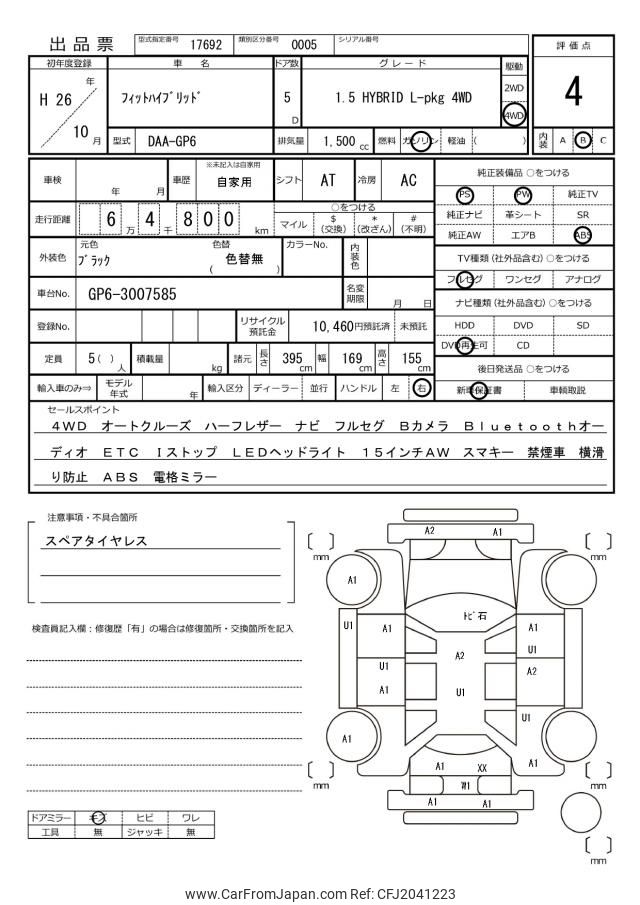 出品票
型式指定番号 17692 類別区分番号 0005 シリアル番号
初年度登録 車名 ドア数 グレード 駆動 評価点
H 26 年 10 月
フィットハイブリッド
5 D
1.5 HYBRID L-pkg 4WD
2WD
4WD
4
型式 DAA-GP6 排気量 1,500 cc 燃料 ガソリン 軽油 ( ) 内装 A B C
車検 年 月 車歴 ※未記入は自家用 自家用 シフト AT 冷房 AC
純正装備品 ○をつける
PS PW 純正TV
走行距離 6 万 4 千 8 0 0 km
○をつける
マイル $(交換) *(改ざん) #(不明)
純正ナビ 革シート SR
純正AW エアB ABS
外装色 元色 ブラック 色替 ( 色替無 ) カラーNo. 内装色
TV種類 (社外品含む) ○をつける
フルセグ ワンセグ アナログ
車台No. GP6-3007585 名変期限 月 日
ナビ種類 (社外品含む) ○をつける
登録No. リサイクル預託金 10,460円預託済 未預託
HDD DVD SD
DVD再生可 CD
定員 5 ( ) 人 積載量 kg 諸元 長さ 395 cm 幅 169 cm 高さ 155 cm
後日発送品 ○をつける
輸入車のみ⇒ モデル年式 年 輸入区分 ディーラー 並行 ハンドル 左 右
新車保証書 車輌取説
セールスポイント
4WD オートクルーズ ハーフレザー ナビ フルセグ Bカメラ Bluetoothオー
ディオ ETC Iストップ LEDヘッドライト 15インチAW スマキー 禁煙車 横滑
り防止 ABS 電格ミラー
注意事項・不具合箇所
スペアタイヤレス
検査員記入欄：修復歴「有」の場合は修復箇所・交換箇所を記入
A2 A1
[ ] mm
[ ] mm
A1
ﾄﾋﾞ石
U1 A1 A1
A2 U1
U1 A2
A1 U1
U1
A1 A1
A1 XX
W1
A1 A1
[ ] mm
[ ] mm
[ ] mm
ドアミラー キズ ヒビ ワレ
工具 無 ジャッキ 無
www.CarFromJapan.com Ref: CFJ2041223